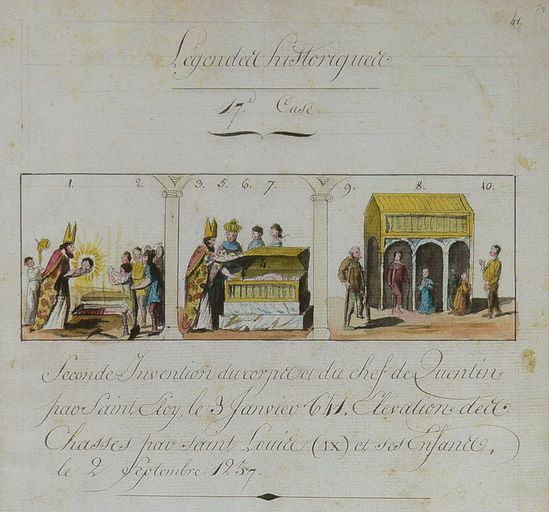 41.
Légendes historiques
17.e Case.
1. 2. 3. 5. 6. 7. 9. 8. 10.
4.
Seconde Invention du corps et du chef de Quentin
par Saint Eloy, le 3 Janvier 641. Elevation des
Chasses par Saint Louis (IX) et ses Enfans,
le 2 Septembre 1257.